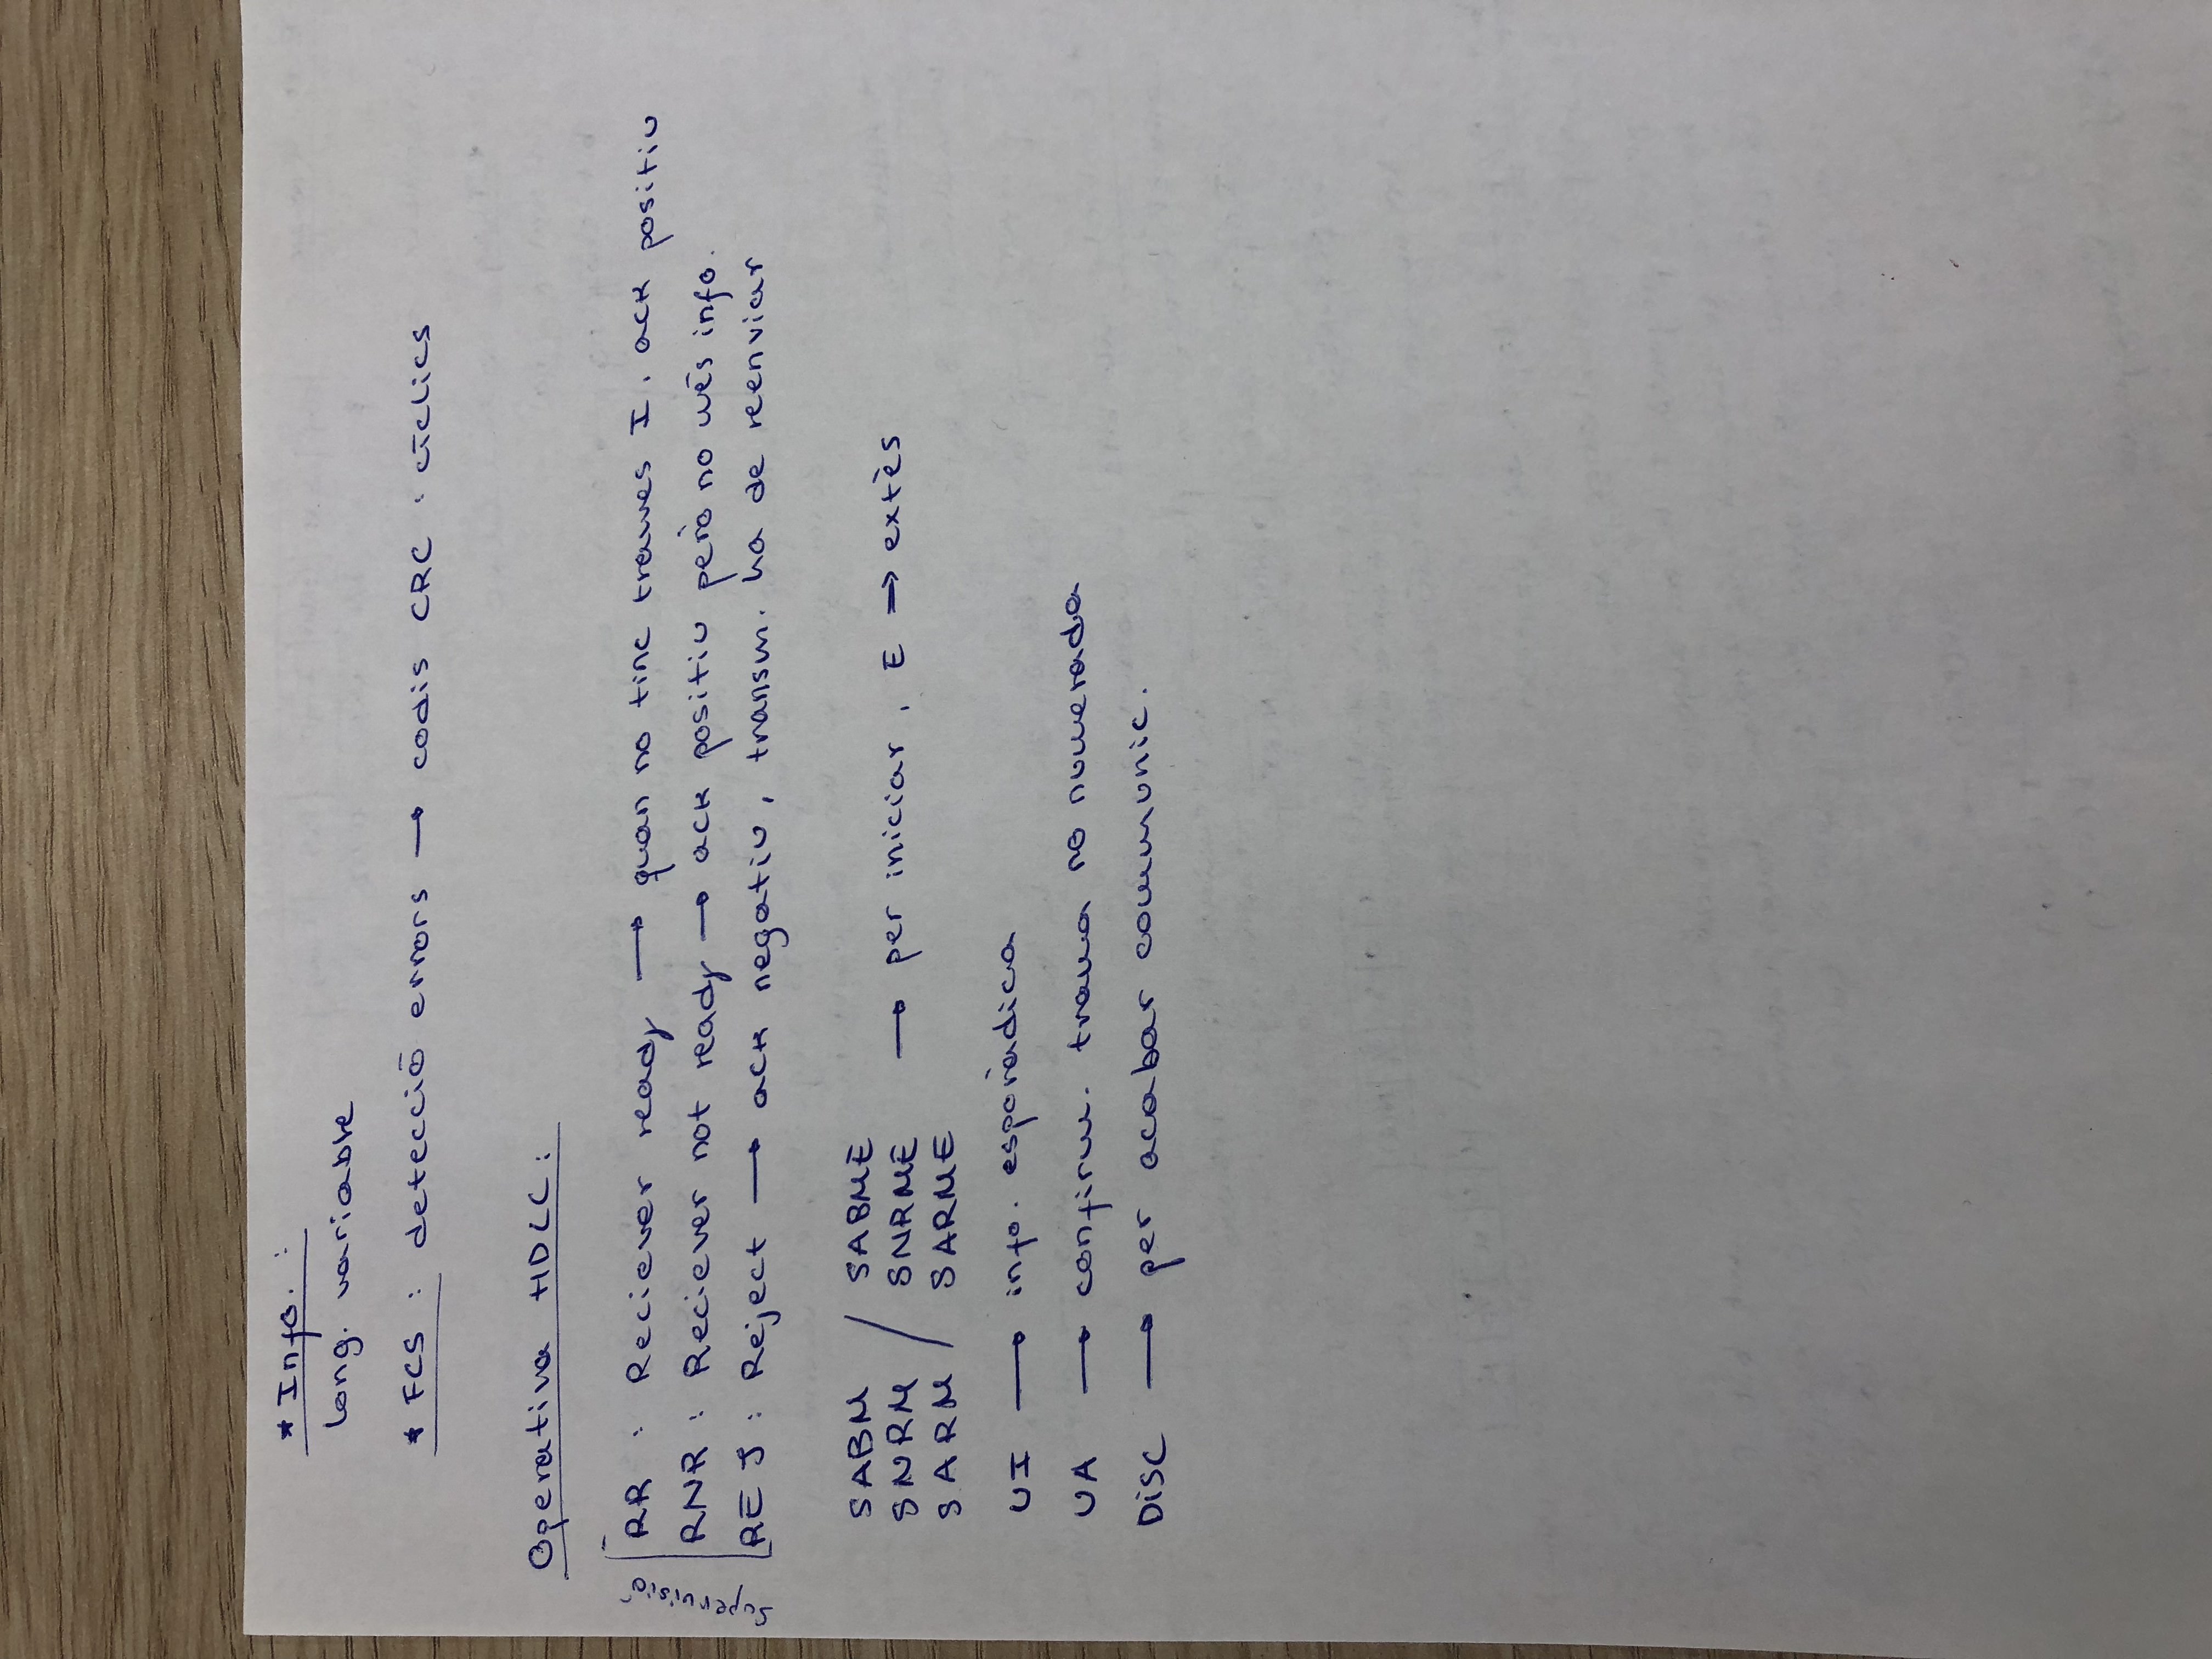 * Info. :
long. variable
* FCS : detecció errors → codis CRC : cíclics
Operativa HDLC :
Supervisió
RR : Reciever ready → quan no tinc trames I, ack positiu
RNR : Reciever not ready → ack positiu però no més info.
REJ : Reject → ack negatiu, transm. ha de reenviar
SABM / SABME
SNRM / SNRME → per iniciar, E → extès
SARM / SARME
UI → info. esporàdica
UA → confirm. trama no numerada
DISC → per acabar communic.